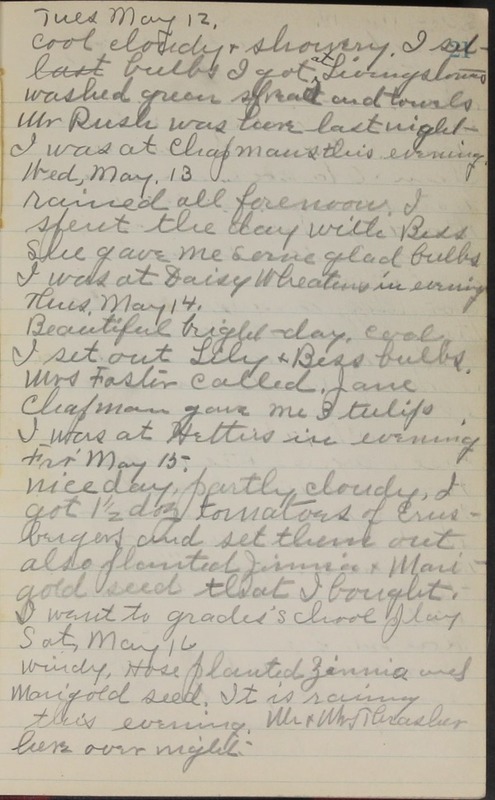 Tues May 12.
21
cool cloudy & showery. I set
last bulbs I got at Livingstones
washed green spread and towels
Mr Rush was here last night
I was at Chapmans this evening.
Wed, May. 13
rained all forenoon. I
spent the day with Bess
She gave me some glad bulbs
I was at Daisy Wheatons in evening
Thus, May 14.
Beautiful bright day. cool
I set out Lily & Bess bulbs.
Mrs Foster called. Jane
Chapman gave me 3 tulips
I was at Hetties in evening
Fri May 15.
nice day, partly cloudy, I
got 1½ doz tomatoes of Crus-
bergers and set them out
also planted Zinnia & Mari-
gold seed that I bought.
I went to grades school play
Sat, May 16
windy. Hose planted Zinnia and
Marigold seed. It is raining
this evening. Mr & Mrs Thrasher
here over night